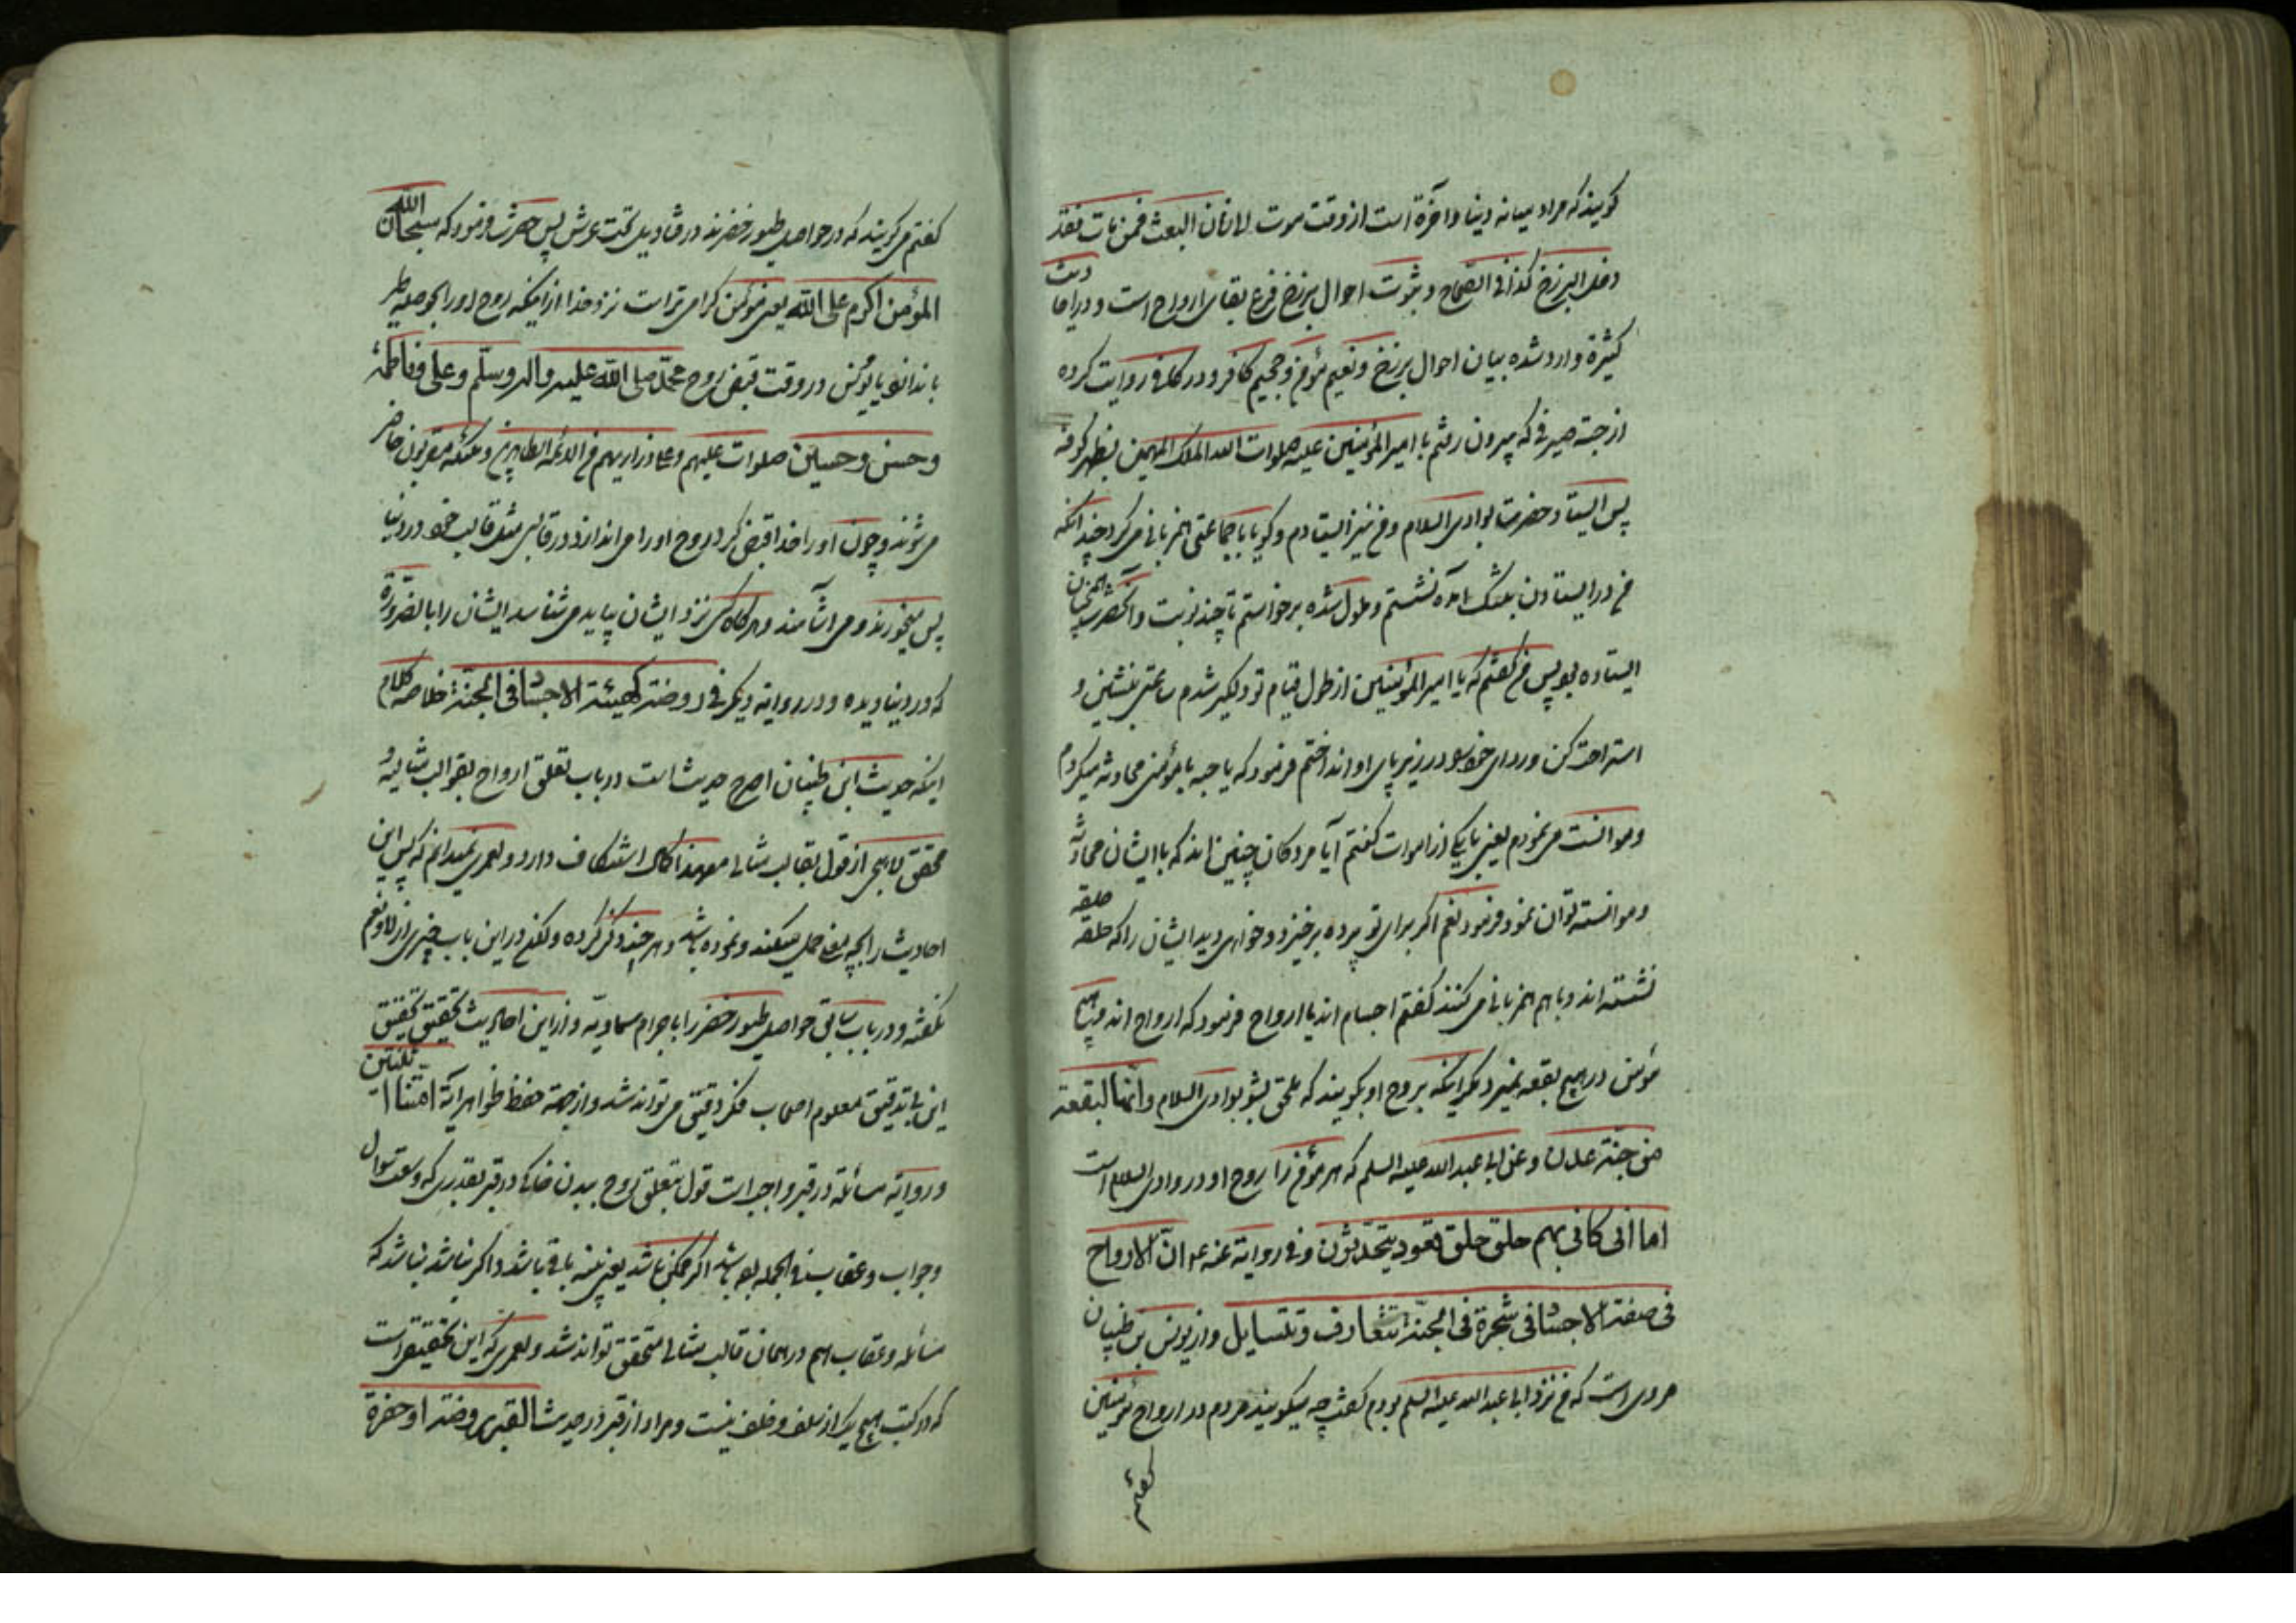 گویند که مراد میانه دنیا و آخرة است از وقت موت لا زمان البعث فمن مات فقد
دخل البرزخ کذا فی الصحاح و ثبوت احوال برزخ فرع بقای ارواح است و در احادیث
کثیرة وارد شده بیان احوال برزخ و نعیم مؤمن و جحیم کافر و در کافی روایت کرده
از حبته که بیرون رفتم با امیر المؤمنین علیه صلوات الله الملک المهیمن بظهر کوفه
پس ایستاد حضرت بوادی السلام و من نیز ایستادم و گویا با جماعتی همزبانی می کرد چندانکه
من در ایستادن بتنگ آمده نشستم و ملول شده برخواستم تا چند نوبت و آنحضرت همچنان
ایستاده بود پس من گفتم که یا امیر المؤمنین از طول قیام تو دلگیر شدم ساعتی بنشین و
استراحت کن و ردای خود در زیر پای او انداختم فرمود که یا حبه با مؤمنی محادثه میکردم
و موانست می نمودم یعنی با یکی از اموات گفتم آیا مردکان چنین اند که با ایشان محادثه
و موانسته توان نمود فرمود نعم اکر برای تو پرده برخیزد و خواهی دید ایشان را که حلقه حلقه
نشسته اند و با هم همزبانی می کنند گفتم اجسام اند یا ارواح فرمود که ارواح اند و هیچ
مؤمن در هیچ بقعه نمیرد مکر اینکه بروح او بگویند که ملحق بشو بوادی السلام و انها لبقعته
من جنة عدن و عن ابی عبد الله علیه السلم که هر مؤمن را روح او در وادی السلام است
اما انی کانی بهم حلق حلق قعود یتحدثون و فی روایة عنه ع ان الارواح
فی صفة الاجساد فی شجرة فی الجنة تتعارف و تتسایل و از یونس بن ظبیان
مروی است که من نزد ابا عبد الله علیه السلم بودم گفت چه میکویند مردم در ارواح مؤمنین
گفتم
گفتم می گویند که در حواصل طیور خضرند در قنادیل تحت عرش پس حضرت فرمود که سبحان الله
المؤمن اکرم علی الله یعنی مؤمن کرامی تر است نزد خدا از اینکه روح او را بحوصله طیر
باندازد یا یونس در وقت قبض روح محمد صلی الله علیه و اله و سلم و علی و فاطمه
و حسن و حسین صلوات علیهم و من الائمه الطاهرین و ملئکه مقربون حاضر
می شوند و چون او را خدا قبض کرد روح او را می اندازد در قالبی مثل قالب خود در دنیا
پس میخورند و می آشامند و هرگاه کسی نزد ایشان بیاید می شناسد ایشان را بالضرورة
که در دنیا دیده و در روایة دیگر فی روضة کهیئة الاجساد فی الجنة خلاصه کلام
اینکه حدیث ابن ظبیان اصح حدیث است در باب تعلق ارواح بقوالب مثالیه و
محقق لاهیجی از قول بقالب مثالی معهذا کمال استنکاف دارد و لعمری نمیدانم که پس این
احادیث را بچه معنی حمل میکند و نموده باشد و هر چند ذکر کرده و لکن در این باب چیزی از لا و نعم
نگفته و در باب سابق حواصل طیور خضر را باجرام سماویه و از این احادیث تحقیق تحقیق
این باب تدقیق معلوم اصحاب فکر دقیق می تواند شد و از جهة حفظ ظواهر آیة امتنا اثنتین
و روایة مسائله در قبر واجب است قول بتعلق روح ببدن خاکی در قبر بقدری که وسعت سؤال
و جواب و عقاب فی الجمله بوده باشد اکر ممکن باشد یعنی بنیه باقی باشد و اکر نباشد نباشد که
مسائله و عقاب هم در همان قالب مثالی متحقق تواند شد و لعمری که این تحقیقی است
که در کتب هیچ یک از سلف و خلف نیست و مراد از قبر در حدیث القبر روضة او حفرة